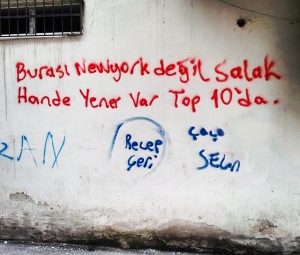 Burası Newyork değil Salak
Hande Yener Var Top 10'da.
ZAN
Recep
Çeri
Çaço
SELAN